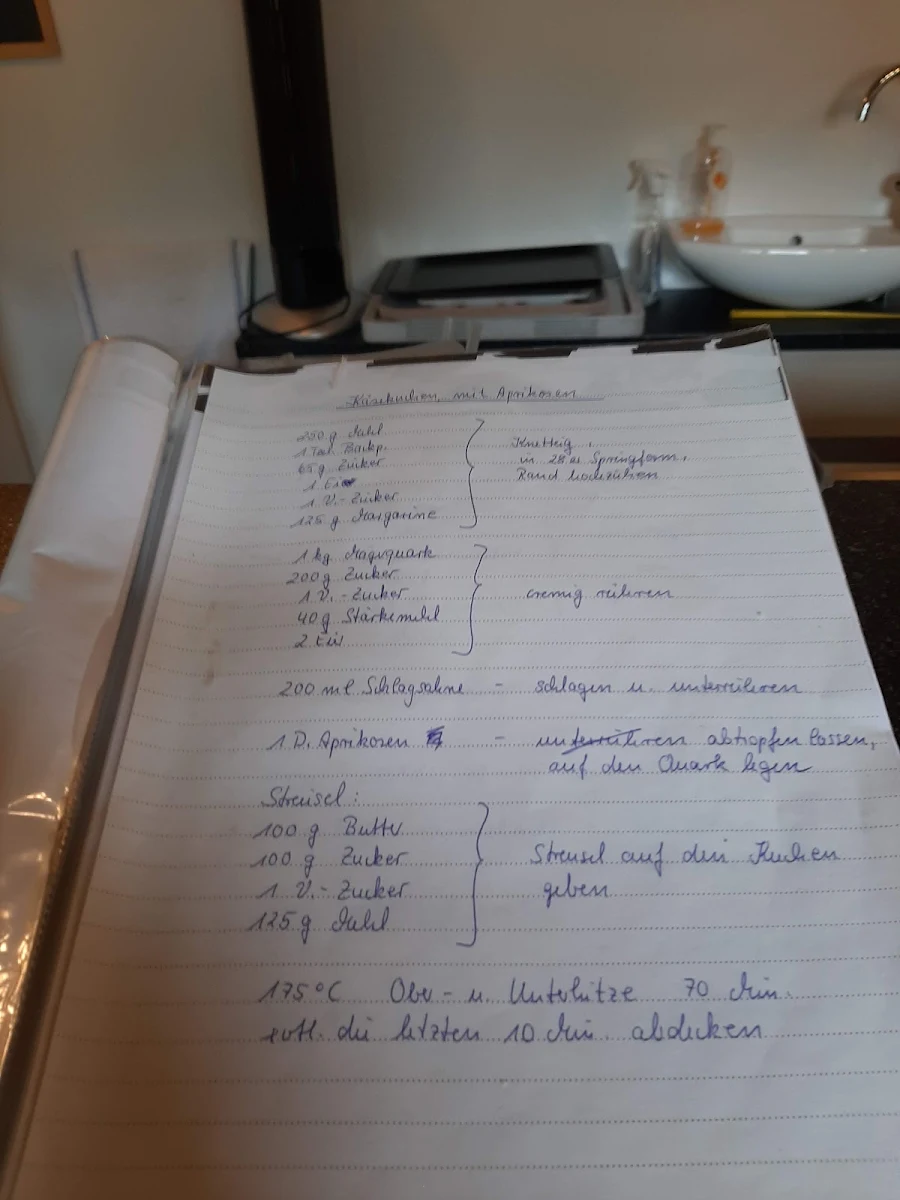 Käsekuchen mit Aprikosen
250 g Mehl
1 Teel. Backp.
65 g Zucker
1 Ei
1 V.-Zucker
125 g Margarine
Knetteig,
in 28er Springform,
Rand hochziehen
1 kg Magerquark
200 g Zucker
1 V.-Zucker
40 g Stärkemehl
2 Eier
cremig rühren
200 ml Schlagsahne - schlagen u. unterrühren
1 D. Aprikosen - unterrühren abtropfen lassen,
auf den Quark legen
Streusel:
100 g Butter
100 g Zucker
1 V.-Zucker
125 g Mehl
Streusel auf den Kuchen
geben
175°C Ober- u. Unterhitze 70 Min.
evtl. die letzten 10 Min. abdecken